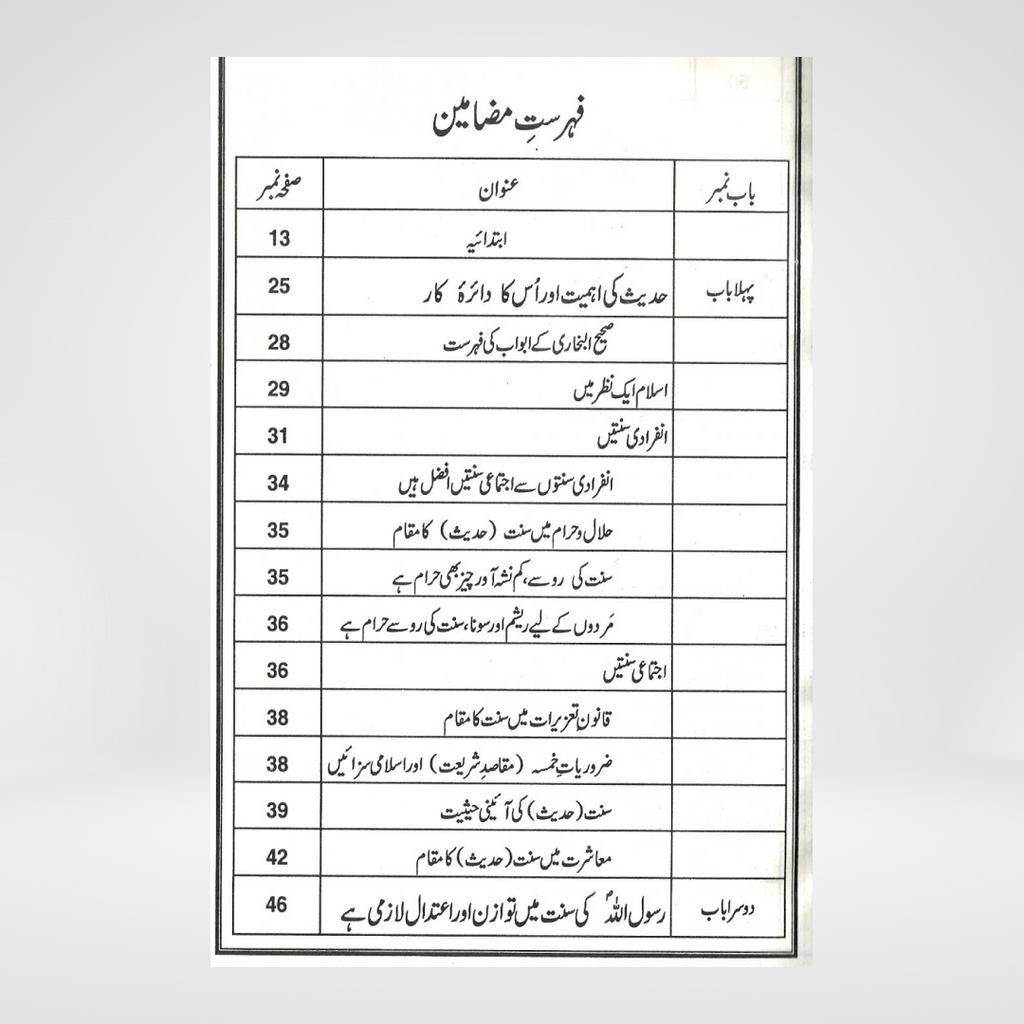 فہرستِ مضامین
باب نمبر عنوان صفحہ نمبر
ابتدائیہ 13
پہلا باب حدیث کی اہمیت اور اُس کا دائرۂ کار 25
صحیح البخاری کے ابواب کی فہرست 28
اسلام ایک نظر میں 29
انفرادی سنتیں 31
انفرادی سنتوں سے اجتماعی سنتیں افضل ہیں 34
حلال و حرام میں سنت (حدیث) کا مقام 35
سنت کی رو سے، کم نشہ آور چیز بھی حرام ہے 35
مَردوں کے لیے ریشم اور سونا، سنت کی رو سے حرام ہے 36
اجتماعی سنتیں 36
قانونِ تعزیرات میں سنت کا مقام 38
ضروریاتِ خمسہ (مقاصدِ شریعت) اور اسلامی سزائیں 38
سنت (حدیث) کی آئینی حیثیت 39
معاشرت میں سنت (حدیث) کا مقام 42
دوسرا باب رسول اللہؐ کی سنت میں توازن اور اعتدال لازمی ہے 46